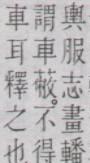 輿服志畫轓
謂車蔽不得
車耳釋之也